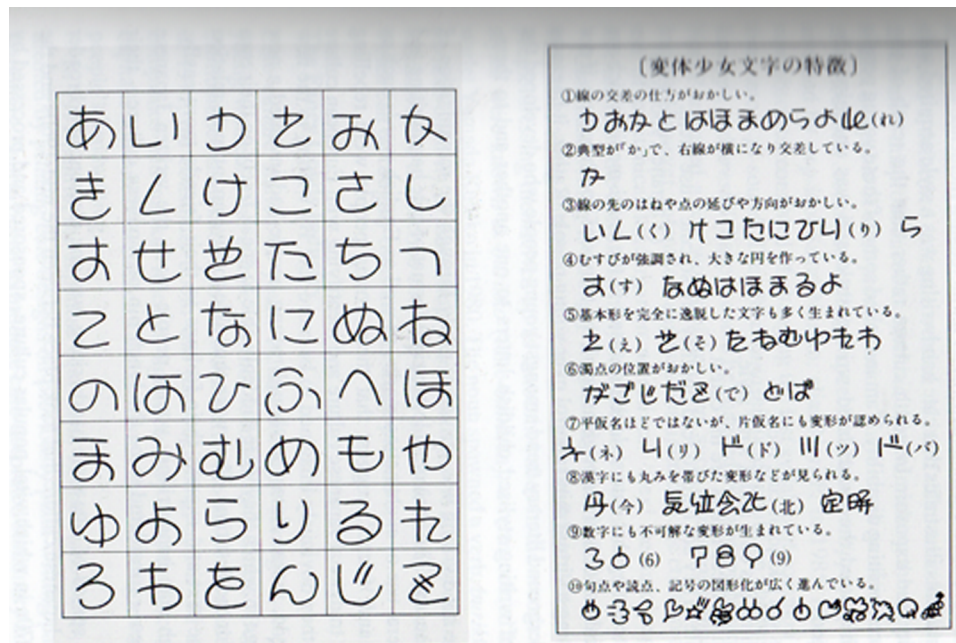 あいうえおか
きくけこさし
すせそたちつ
てとなにぬね
のはひふへほ
まみむめもや
ゆよらりるれ
ろわをんじで
〔変体少女文字の特徴〕
①線の交差の仕方がおかしい。
うおかとはほまめらよれ(れ)
②典型が「か」で、右線が横になり交差している。
か
③線の先のはねや点の延びや方向がおかしい。
いく(く) けこたにひり(り) ら
④むすびが強調され、大きな円を作っている。
す(す) なぬはほまるよ
⑤基本形を完全に逸脱した文字も多く生まれている。
え(え) そ(そ) たねむゆもわ
⑥濁点の位置がおかしい。
がごじだで(で) どば
⑦平仮名ほどではないが、片仮名にも変形が認められる。
ネ(ネ) リ(リ) ド(ド) ツ(ツ) バ(バ)
⑧漢字にも丸みを帯びた変形などが見られる。
今(今) 気位会北(北) 定解
⑨数字にも不可解な変形が生まれている。
36(6) 789(9)
⑩句点や読点、記号の図形化が広く進んでいる。